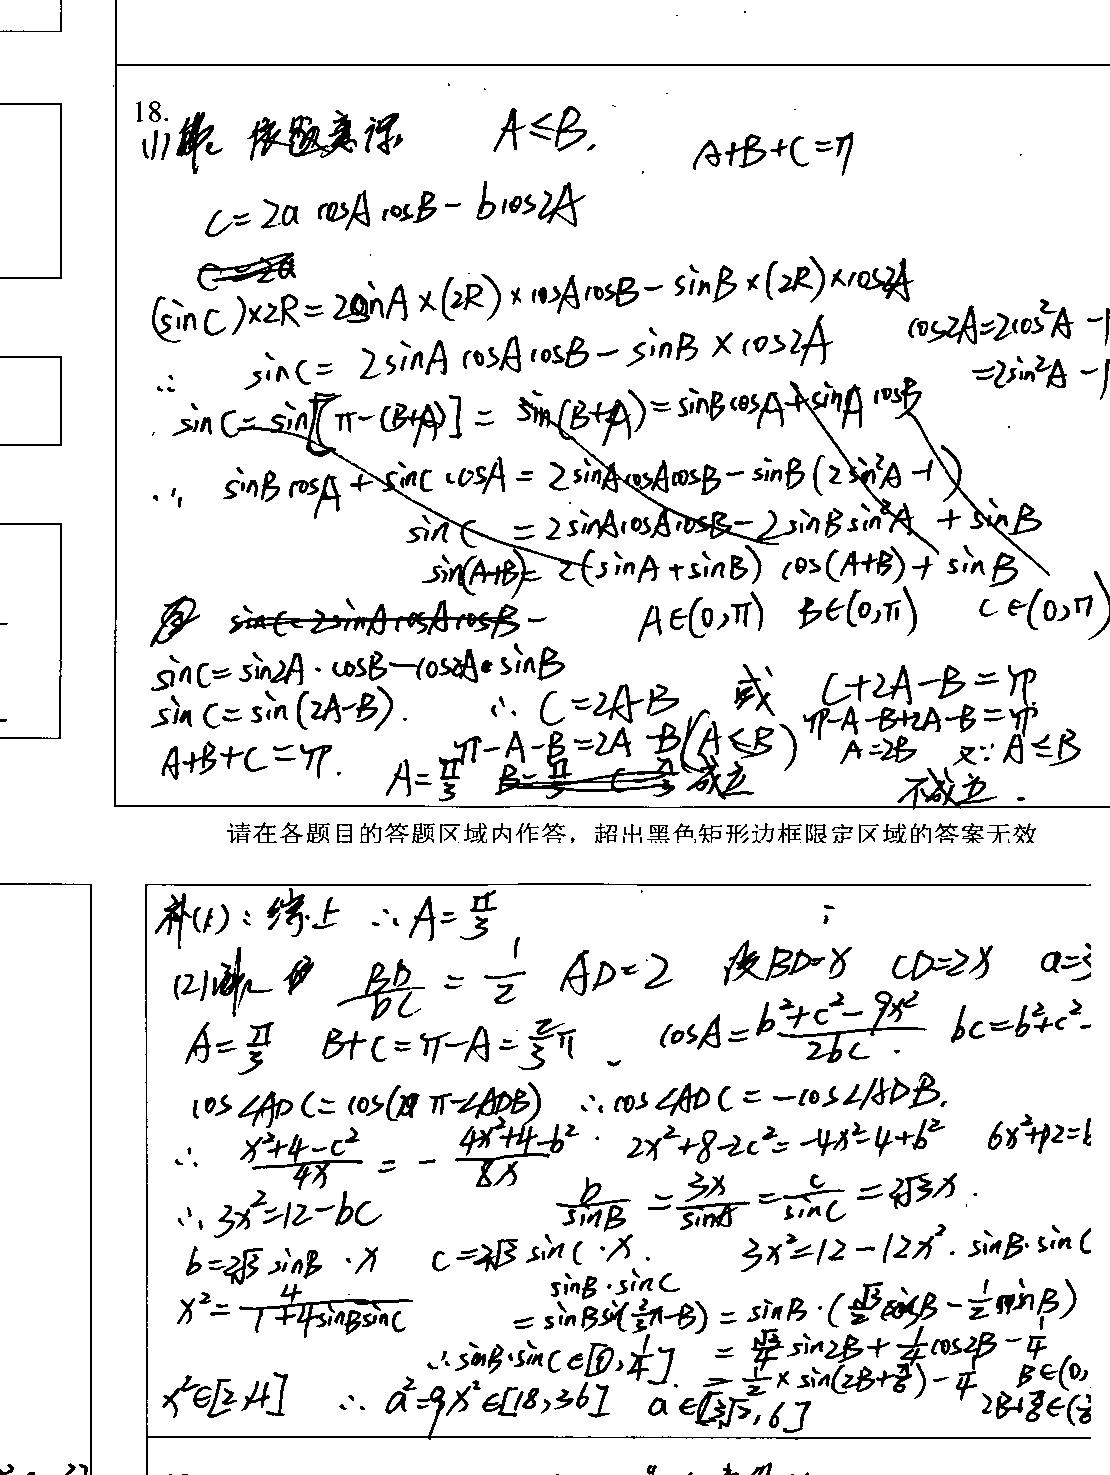 18.
(1)解 依题意得 A≤B, A+B+C=π
c=2a cosA cosB-bcos2A
(sinC)×2R=2sinA×(2R)×cosAcosB-sinB×(2R)×cos2A
cos2A=2cos²A-1
∴ sinC=2sinAcosAcosB-sinB×cos2A
=2sin²A-1
sinC=sin[π-(B+A)]=sin(B+A)=sinBcosA+sinAcosB
∴ sinBcosA+sinCcosA=2sinAcosAcosB-sinB(2sin²A-1)
sinC=2sinAcosAcosB-2sinBsin²A+sinB
sin(A+B)=2(sinA+sinB)cos(A+B)+sinB
sinC=2sinAcosAcosB-
A∈(0,π) B∈(0,π) C∈(0,π)
sinC=sin2A·cosB-cos2A·sinB
sinC=sin(2A-B). ∴C=2A-B 或 C+2A-B=π
A+B+C=π. π-A-B=2A-B(A≤B) π-A-B+2A-B=π
A=2B 又∵A≤B
A=π/3 B=π/3 C=π/3 成立 不成立.
请在各题目的答题区域内作答，超出黑色矩形边框限定区域的答案无效
补(1)：综上 ∴A=π/3
(2)解 BD/DC=1/2 AD=2 设BD=x CD=2x a=3
A=π/3 B+C=π-A=2/3π. cosA=(b²+c²-9x²)/2bc. bc=b²+c²-
cos∠ADC=cos(π-∠ADB) ∴cos∠ADC=-cos∠ADB.
∴ (x²+4-c²)/4x=-(4x²+4-b²)/8x. 2x²+8-2c²=-4x²-4+b² 6x²+12=b
∴3x²=12-bc b/sinB=3x/sinA=c/sinC=2√3x.
b=2√3sinB·x c=2√3sinC·x. 3x²=12-12x²·sinB·sinC
x²=4/(1+4sinBsinC) sinB·sinC
=sinBsin(2/3π-B)=sinB·(√3/2cosB-1/2sinB)
∴sinB·sinC∈[0,1/4]. =√3/4sin2B+1/4cos2B-1/4
=1/2×sin(2B+π/6)-1/4 B∈(0,
x²∈[2,4] ∴a²=9x²∈[18,36] a∈[3√2,6] 2B+π/6∈(π/6